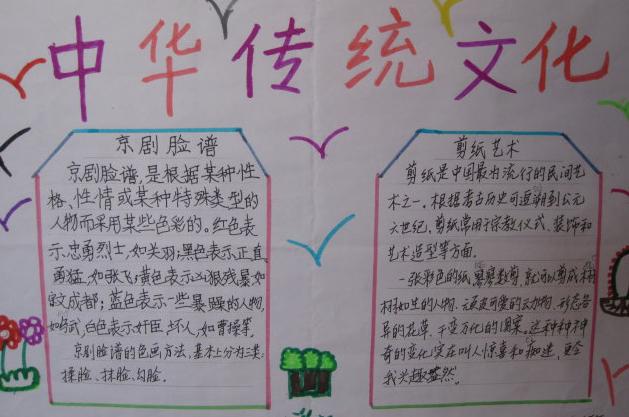 中华传统文化
京剧脸谱
京剧脸谱,是根据某种性
格、性情或某种特殊类型的
人物而采用某些色彩的。红色表
示忠勇烈士,如关羽;黑色表示正直
勇猛,如张飞;黄色表示凶狠残暴如
宇文成都;蓝色表示一些暴躁的人物,
如 白色表示奸臣、坏人,如曹操等。
京剧脸谱的色画方法,基本上分为三类:
揉脸、抹脸、勾脸。
剪纸艺术
剪纸是中国最为流行的民间艺
术之一,根据考古历史可追朔到公元
六世纪,剪纸常用于宗教仪式、装饰和
艺术造型等方面。
一张彩色的纸, 数剪,就可以剪成栩
如生的人物、 可爱的动物、形态各
异的花草、千变万化的图案。这种种神
奇的变化实在叫人惊喜和痴迷,更令
我兴趣盎然。